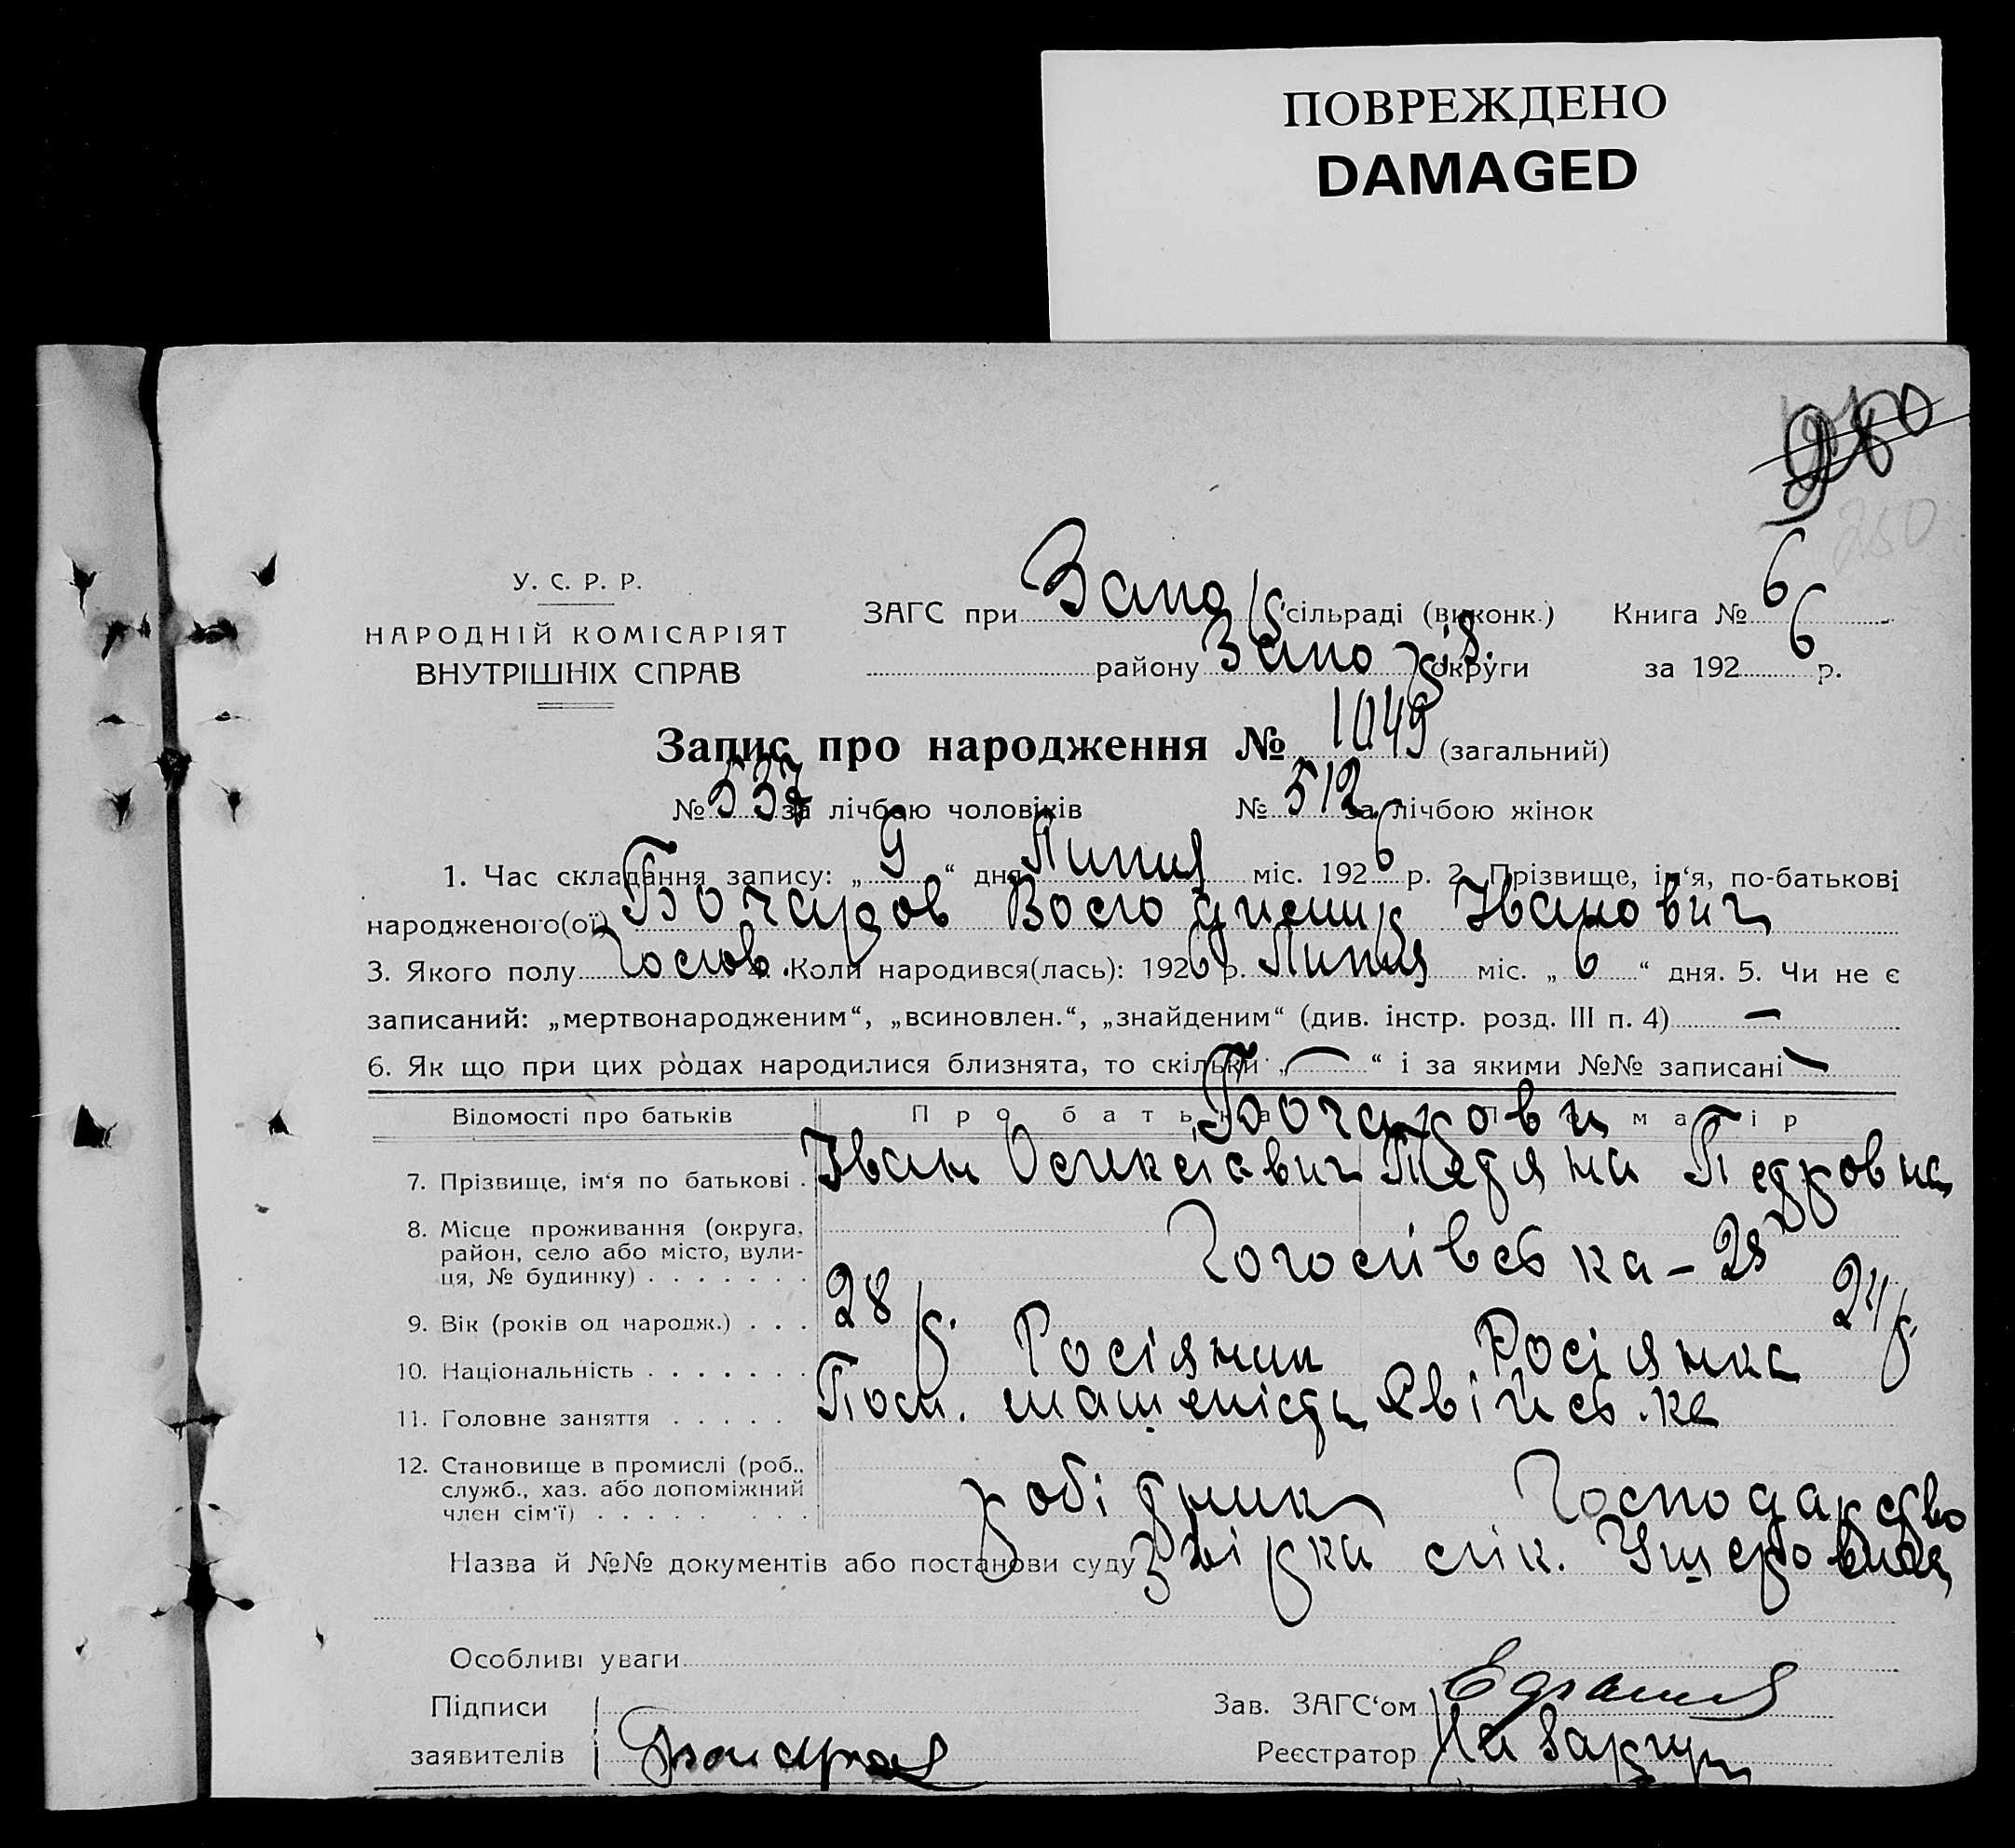 ПОВРЕЖДЕНО
DAMAGED
250
У. С. Р. Р.
НАРОДНІЙ КОМІСАРІЯТ
ВНУТРІШНІХ СПРАВ
ЗАГС при Запор сільраді (виконк.) Книга № 6
району Запоріз. округи за 1926 р.
Запис про народження № 1049 (загальний)
№ 537 за лічбою чоловіків № 512 за лічбою жінок
1. Час складання запису: „ 9 “ дня Липня міс. 1926 р. 2. Прізвище, ім‘я, по-батькові
народженого(ої) Бочаров Володимир Іванович
3. Якого полу Чолов. 4. Коли народився(лась): 1926 р. Липня міс. „ 6 “ дня. 5. Чи не є
записаний: „мертвонародженим“, „всиновлен.“, „знайденим“ (див. інстр. розд. III п. 4) —
6. Як що при цих родах народилися близнята, то скільки „ — “ і за якими №№ записані —
Відомості про батьків Про батька Про матір
Бочарови
7. Прізвище, ім‘я по батькові . Іван Олексієвич Тетяна Петровна
8. Місце проживання (округа,
район, село або місто, вули-
ця, № будинку) . . . . . . . Гоголівська – 28
9. Вік (років од народж.) . . . 28 р. 24 р.
10. Національність . . . . . . . Росіянин Росіянка
11. Головне заняття . . . . . Пом. машиніста Свійсь.ке
12. Становище в промислі (роб.,
служб., хаз. або допоміжний
член сім‘ї) . . . . . . . . робітник Господарство
Назва й №№ документів або постанови суду
Особливі уваги
Підписи
заявителів
Зав. ЗАГС‘ом
Реєстратор